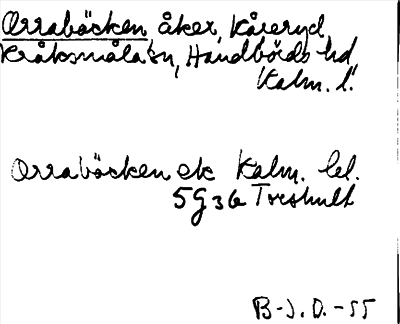 Orrabäcken, åker, Kåreryd,
Kråksmåla sn, Handbörds hd,
Kalm. l.
Orrabäcken ek Kalm. lel.
5G3b
B-J. D. - 55